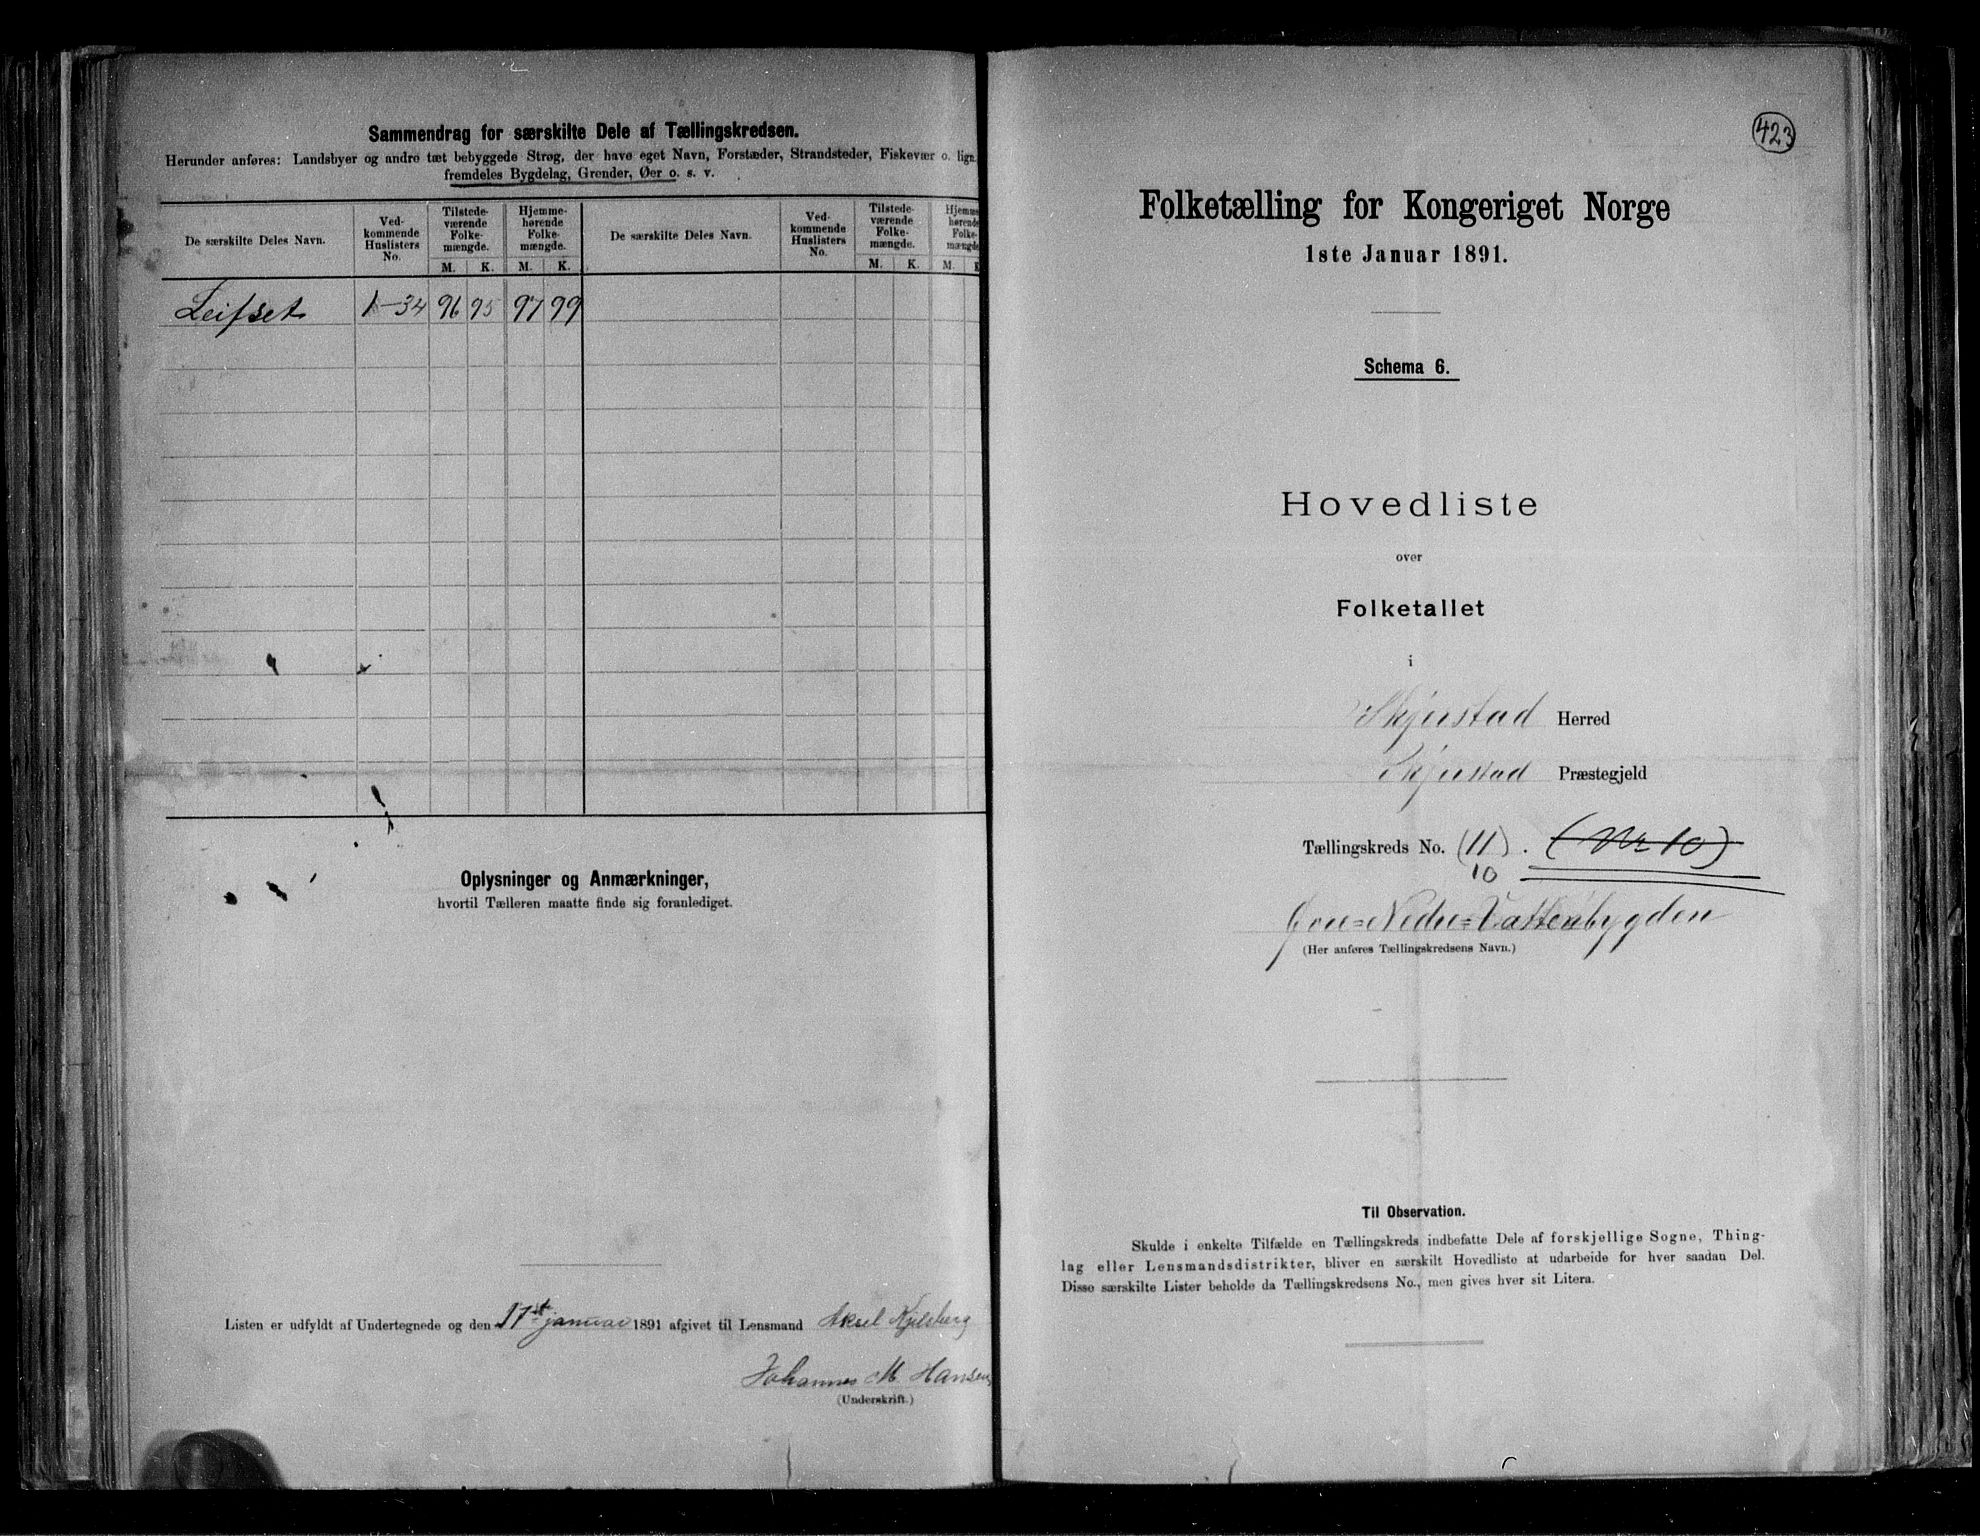 Sammendrag for særskilte Dele af Tællingskredsen.
Herunder anføres: Landsbyer og andre tæt bebyggede Strøg, der have eget Navn, Forstæder, Strandsteder, Fiskevær o. lign.
fremdeles Bygdelag, Grender, Øer o. s. v.
De særskilte Deles Navn.
Ved-
kommende
Huslisters
No.
Tilstede-
værende
Folke-
mængde.
Hjemme-
hørende
Folke-
mængde.
M. K. M. K.
De særskilte Deles Navn.
Ved-
kommende
Huslisters
No.
Tilstede-
værende
Folke-
mængde.
Hjemme-
hørende
Folke-
mængde
M. K. M. K
Leifset 1-34 96 95 97 99
Oplysninger og Anmærkninger,
hvortil Tælleren maatte finde sig foranlediget.
Listen er udfyldt af Undertegnede og den 17de januar 1891 afgivet til Lensmand Aksel Kjelsberg
Johannes M. Hansen
(Underskrift.)
423
Folketælling for Kongeriget Norge
1ste Januar 1891.
Schema 6.
Hovedliste
over
Folketallet
i
Skjerstad Herred
Skjerstad Præstegjeld
Tællingskreds No. (11). (Nr 10)
10
Øvre=Nedre=Vattenbygden
(Her anføres Tællingskredsens Navn.)
Til Observation.
Skulde i enkelte Tilfælde en Tællingskreds indbefatte Dele af forskjellige Sogne, Thing-
lag eller Lensmandsdistrikter, bliver en særskilt Hovedliste at udarbeide for hver saadan Del.
Disse særskilte Lister beholde da Tællingskredsens No., men gives hver sit Litera.